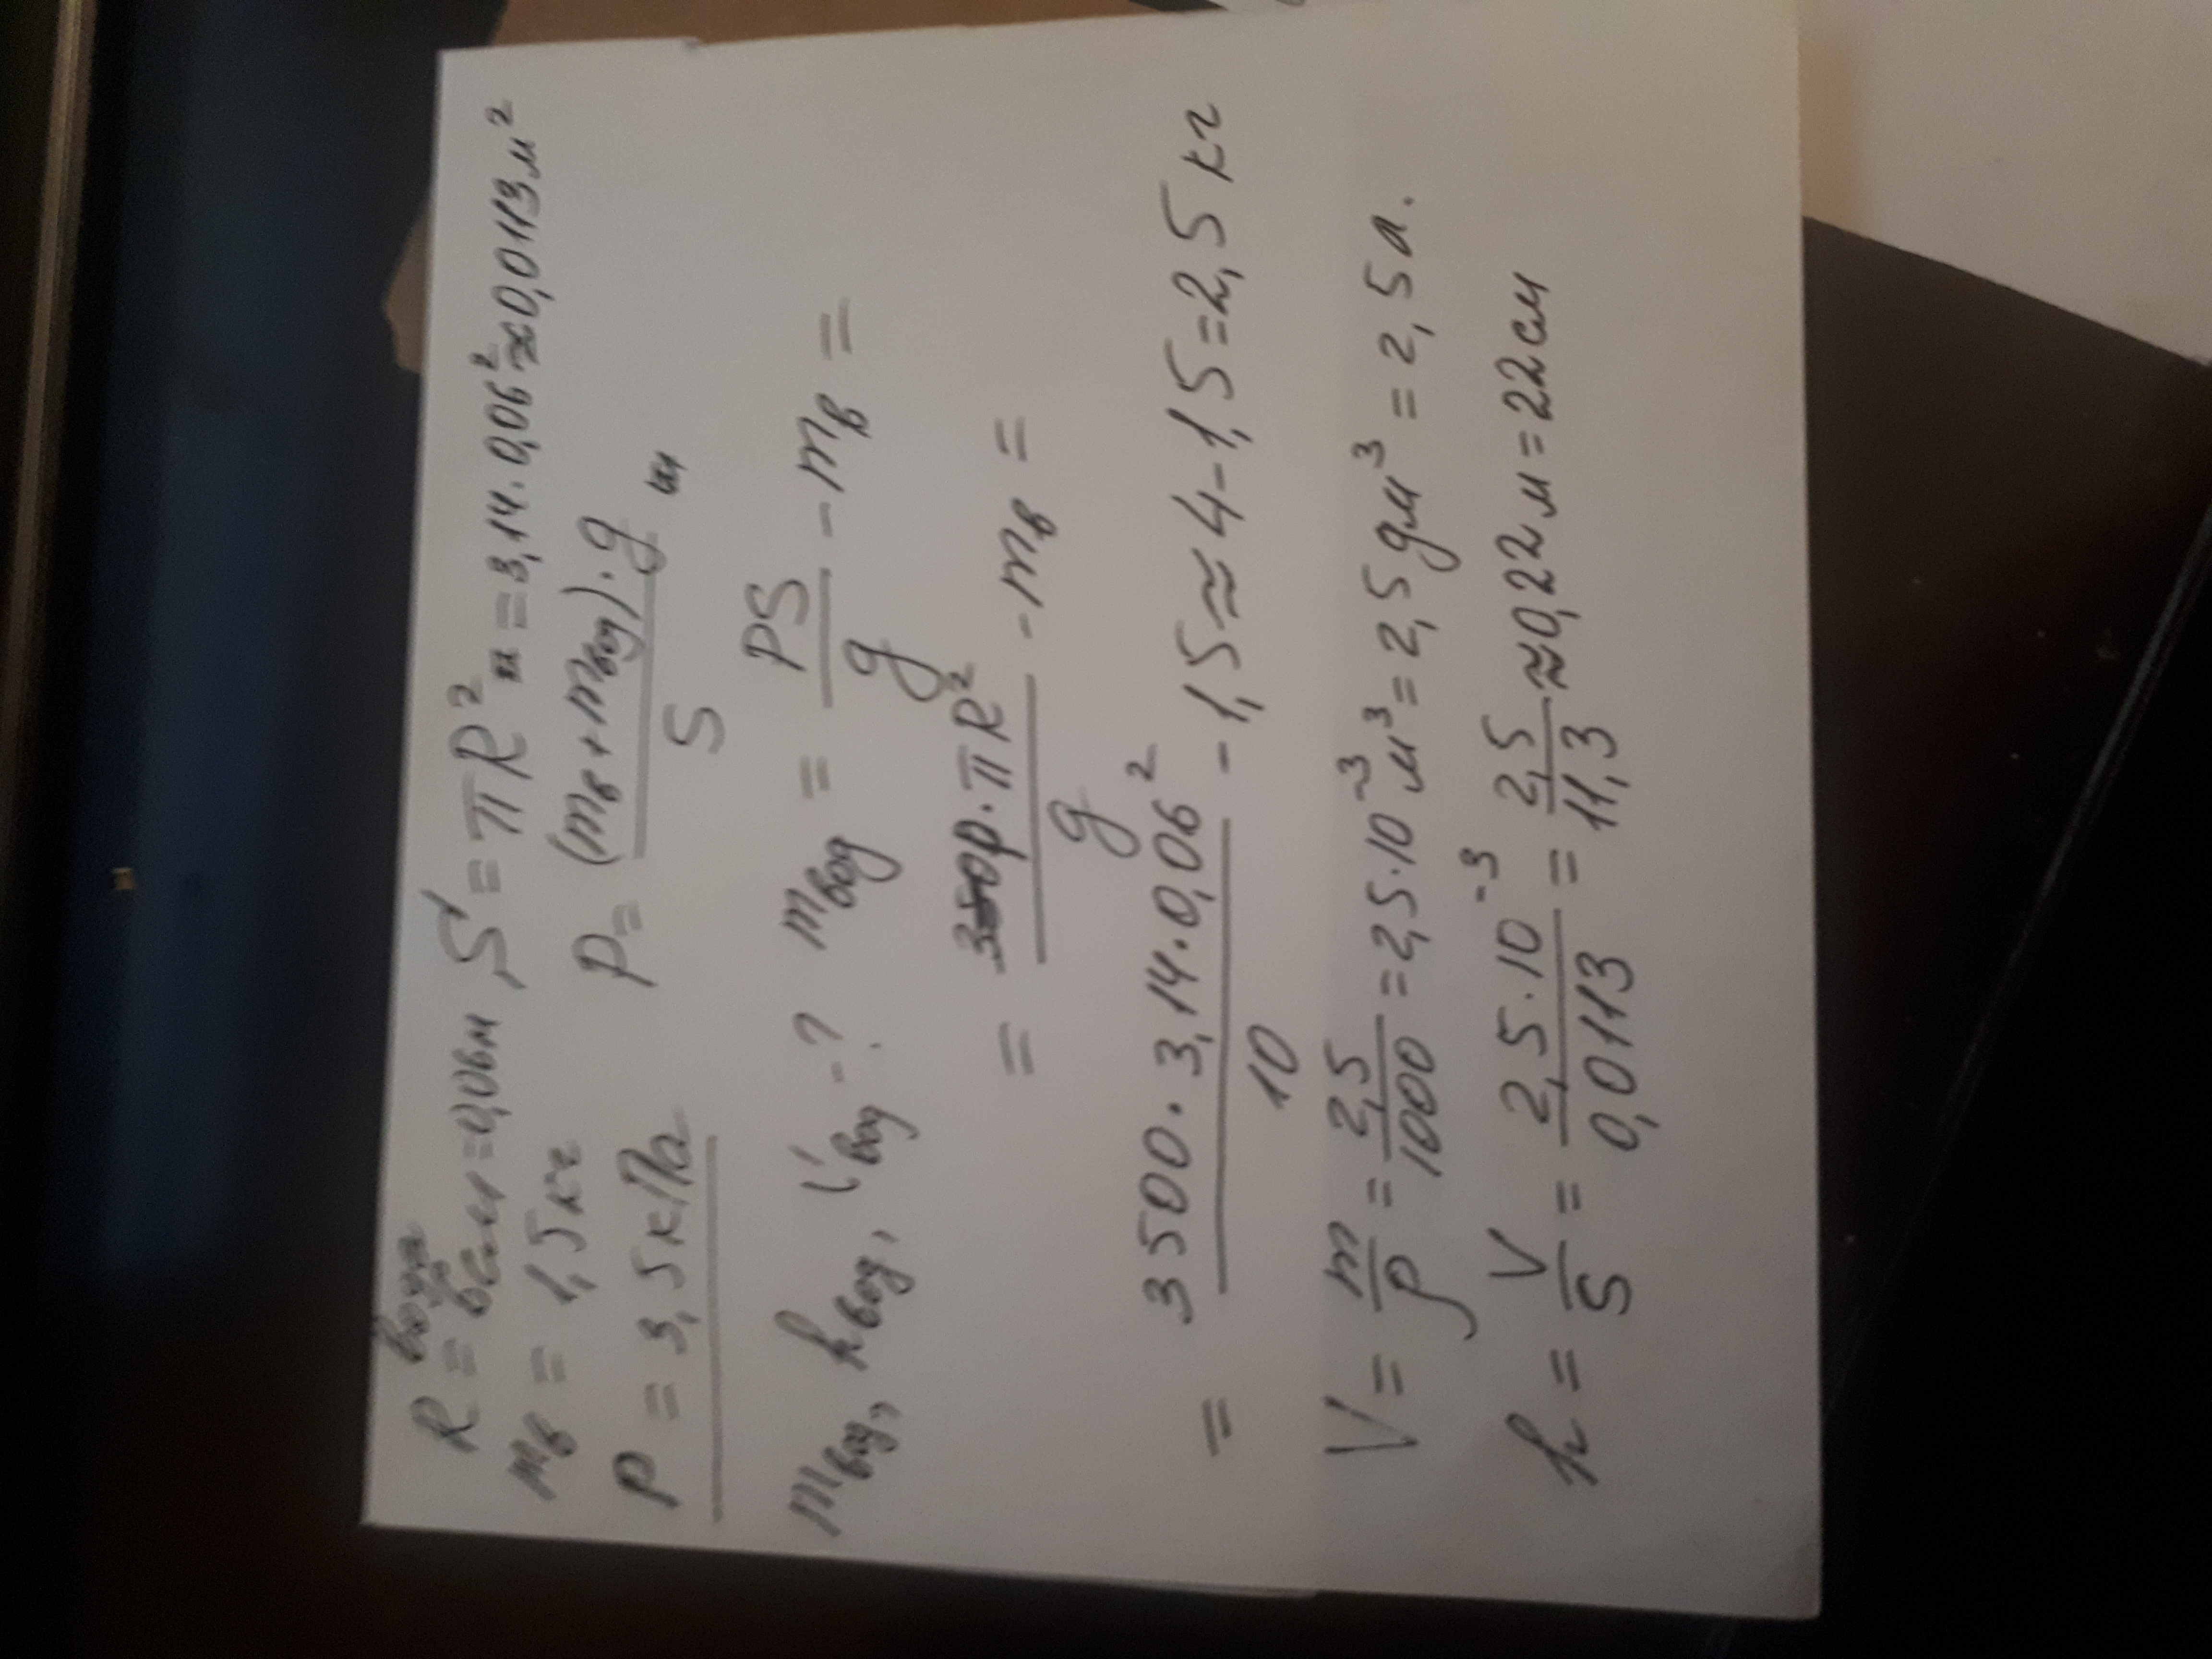 вода
R = 6см = 0,06м
m_в = 1,5 кг
P = 3,5 кПа
m_вод, h_вод, V_вод - ?
S = πR² = 3,14 · 0,06² ≈ 0,0113 м²
P = (m_в + m_вод) · g / S
m_вод = PS / g - m_в =
= p · πR² / g - m_в =
= 3500 · 3,14 · 0,06² / 10 - 1,5 ≈ 4 - 1,5 = 2,5 кг
V = m / ρ = 2,5 / 1000 = 2,5 · 10⁻³ м³ = 2,5 дм³ = 2,5 л.
h = V / S = 2,5 · 10⁻³ / 0,0113 = 2,5 / 11,3 ≈ 0,22 м = 22 см